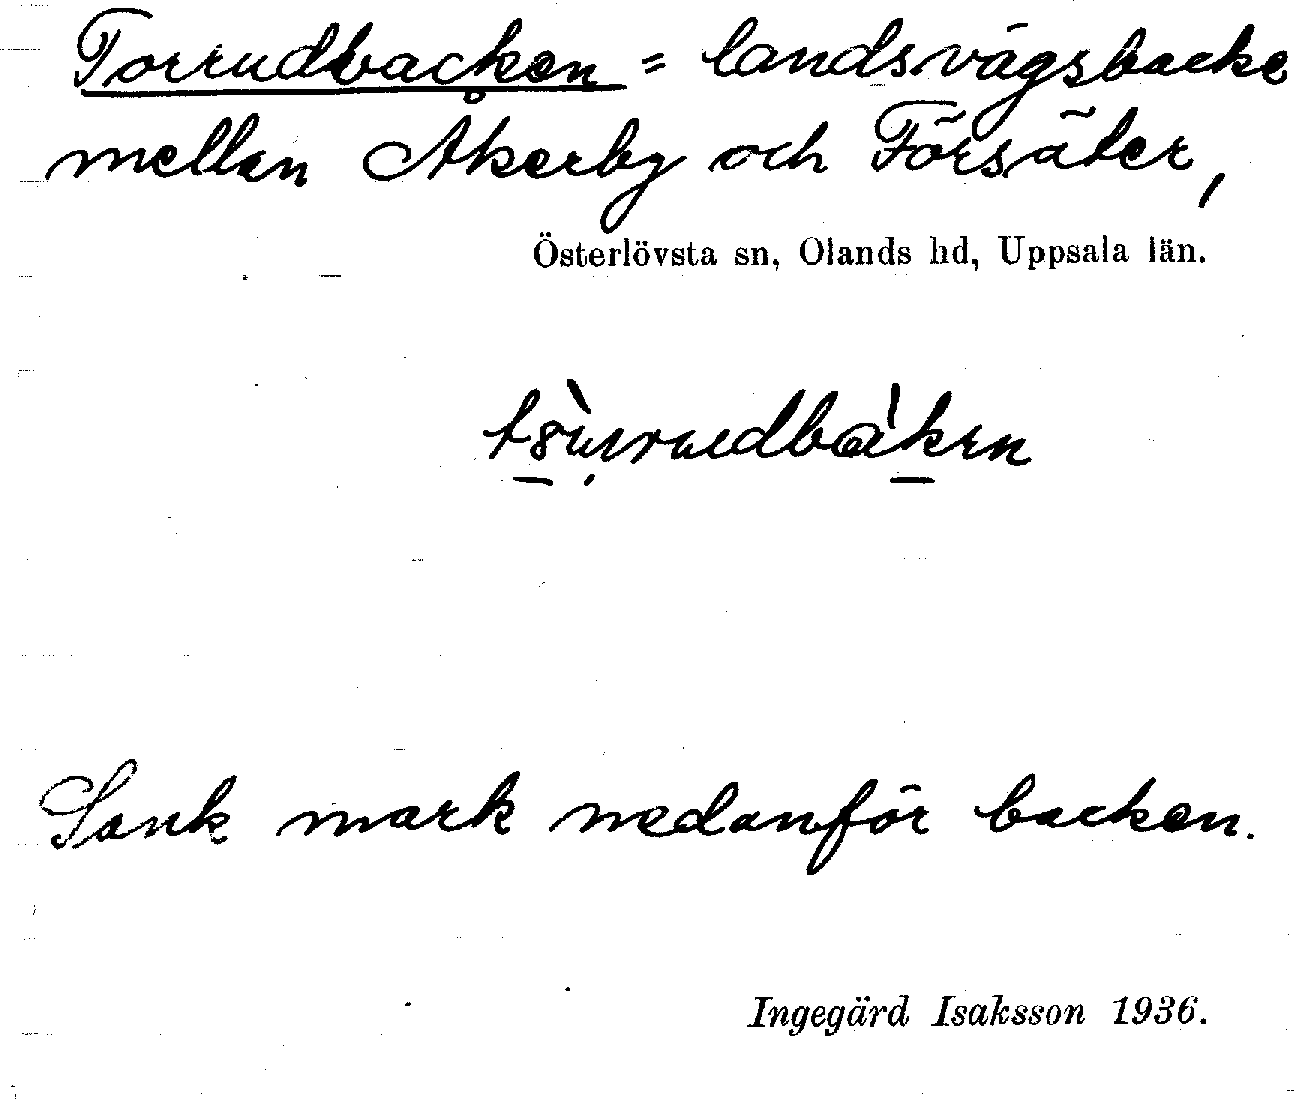 Torrudbacken = landsvägsbacke
mellan Åkerby och Försäter,
Österlövsta sn, Olands hd, Uppsala län.
Sank mark nedanför backen.
Ingegärd Isaksson 1936.